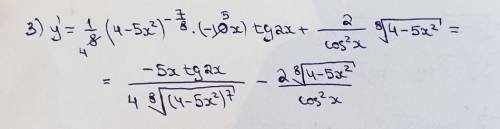 3) y' = 1/8 (4-5x²)^(-7/8) · (-10x) tg2x + 2/cos²x ⁸√(4-5x²) =
4 5
= -5x tg2x / 4 ⁸√((4-5x²)⁷) - 2 ⁸√(4-5x²) / cos²x